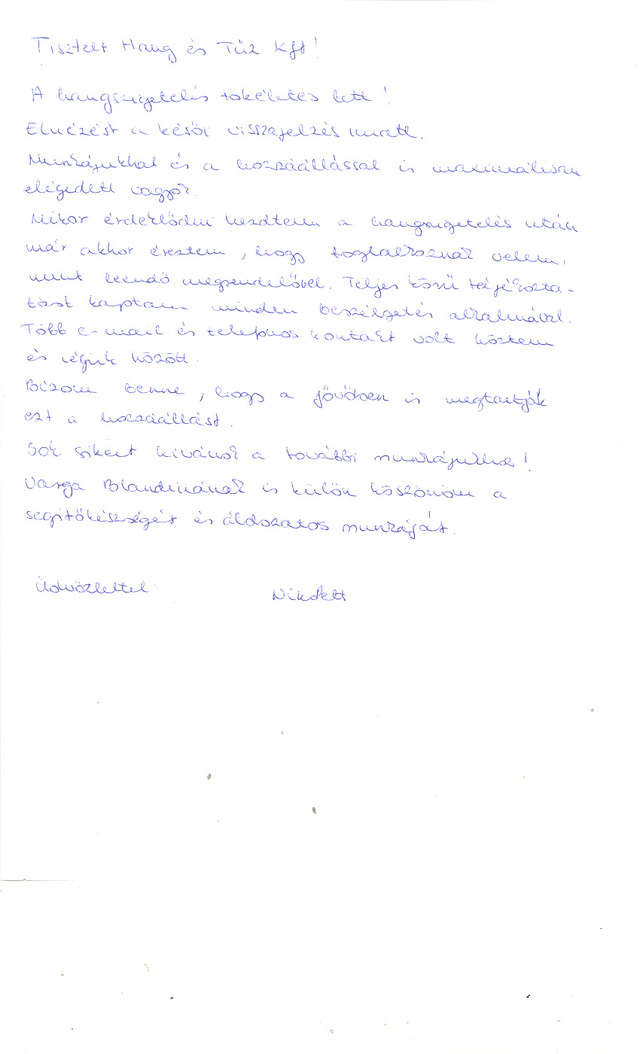 Tisztelt Hang és Tűz Kft!
A hangszigetelés tökéletes lett!
Elnézést a késői visszajelzés miatt.
Munkájukkal és a hozzáállással is maximálisan
elégedett vagyok.
Mikor érdeklődni kezdtem a hangszigetelés után
már akkor éreztem, hogy foglalkoznak velem,
mint leendő megrendelővel. Teljes körű tájékozta-
tást kaptam minden beszélgetés alkalmával.
Több e-mail és telephos kontakt volt köztem
és cégük között.
Bízom benne, hogy a jövőben is megtartják
ezt a hozzáállást.
Sok sikert kívánok a további munkájukhoz!
Varga Blandinának is külön köszönöm a
segítőkészségét és áldozatos munkáját.
Üdvözlettel Nikolett